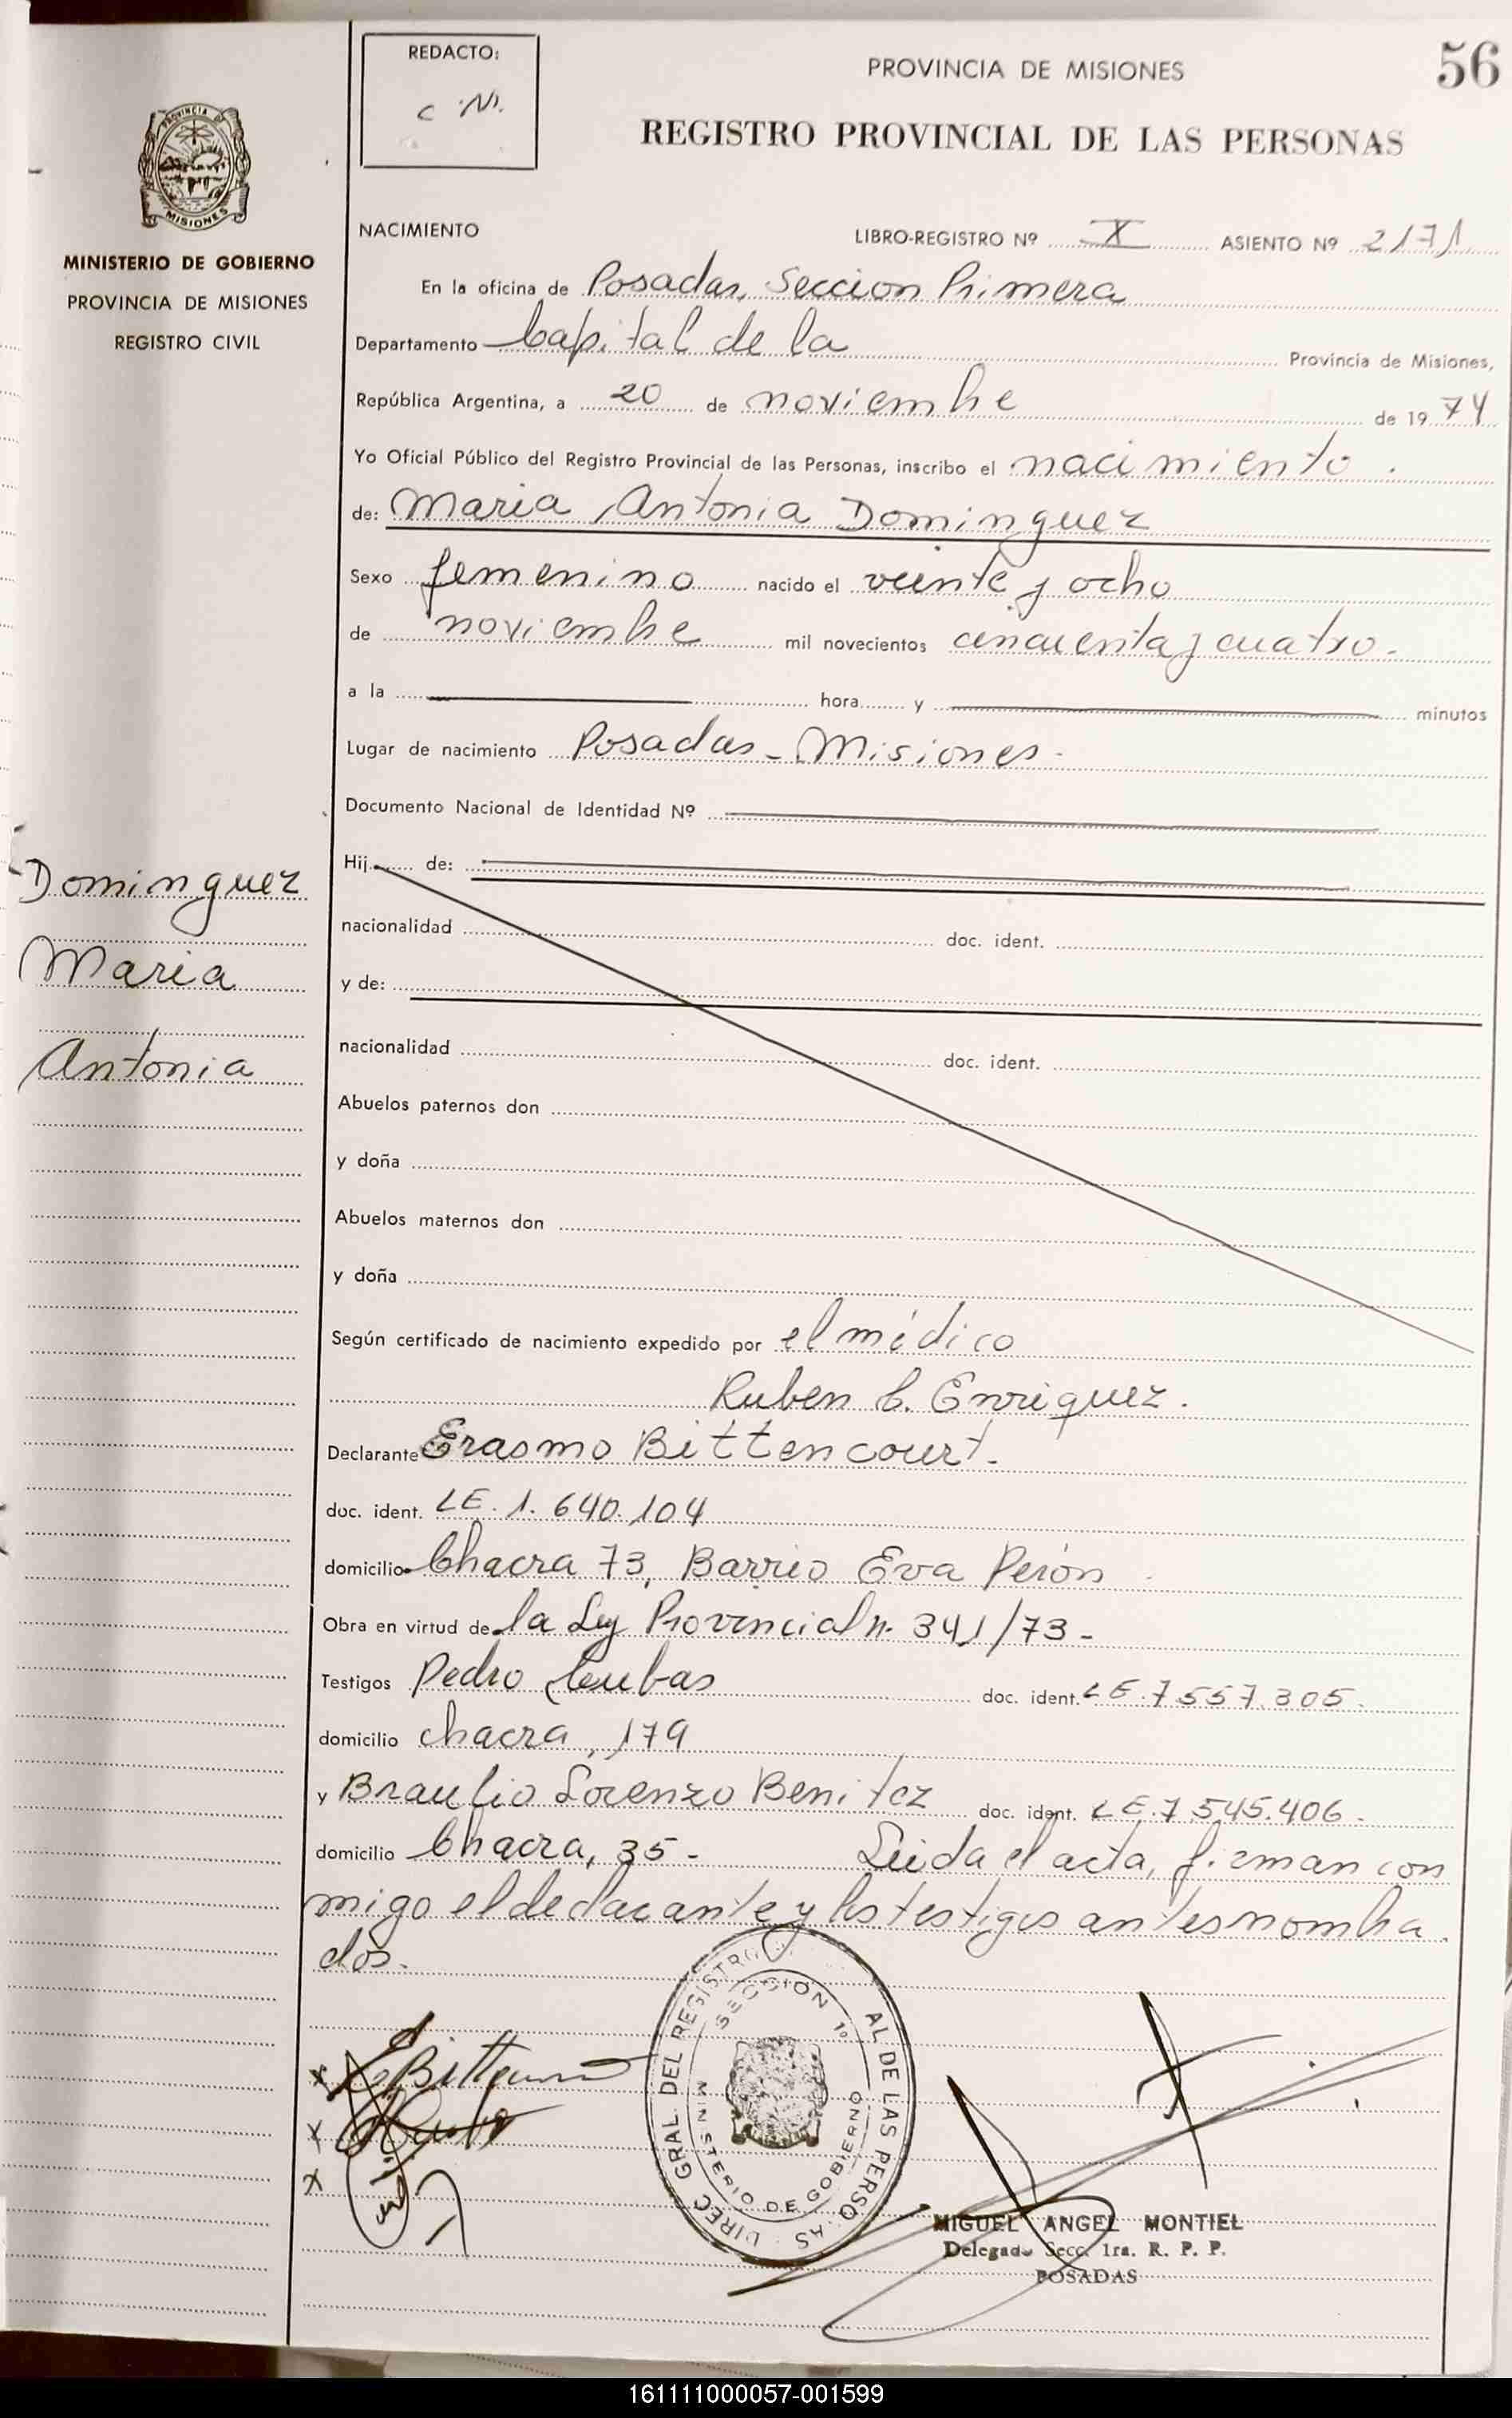 REDACTO:
C .N.
PROVINCIA DE MISIONES
56
REGISTRO PROVINCIAL DE LAS PERSONAS
PROVINCIA DE
MISIONES
MINISTERIO DE GOBIERNO
PROVINCIA DE MISIONES
REGISTRO CIVIL
NACIMIENTO
LIBRO-REGISTRO Nº X ASIENTO Nº 2171
En la oficina de Posadas, Seccion Primera
Departamento Capital de la Provincia de Misiones,
República Argentina, a 20 de noviembre de 1974
Yo Oficial Público del Registro Provincial de las Personas, inscribo el nacimiento.
de: Maria Antonia Dominguez
Sexo femenino nacido el veinte y ocho
de noviembre mil novecientos cincuenta y cuatro.
a la hora y minutos
Lugar de nacimiento Posadas - Misiones -
Documento Nacional de Identidad Nº
Hij de:
Dominguez
Maria
Antonia
nacionalidad doc. ident.
y de:
nacionalidad doc. ident.
Abuelos paternos don
y doña
Abuelos maternos don
y doña
Según certificado de nacimiento expedido por el médico
Ruben C. Enriquez.
Declarante Erasmo Bittencourt.
doc. ident. LE. 1. 640. 104
domicilio Chacra 73, Barrio Eva Perón
Obra en virtud de la Ley Provincial n. 341/73 -
Testigos Pedro Cubas doc. ident. LE. 7557.305.
domicilio chacra, 179
y Braulio Lorenzo Benitez doc. ident. LE. 7.545.406.
domicilio Chacra, 35 - Leida el acta, firman con
migo el declarante y los testigos antes nombra
dos.
DIREC GRAL. DEL REGISTRO AL DE LAS PERSO AS
SECCION 1º
MINISTERIO DE GOBIERNO
MIGUEL ANGEL MONTIEL
Delegado Secc. 1ra. R. P. P.
POSADAS
161111000057-001599